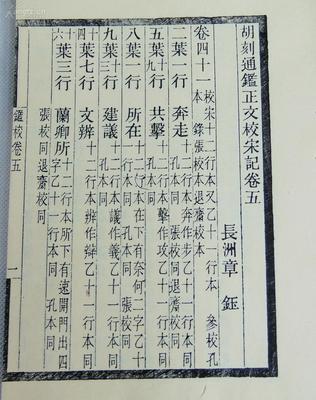 胡刻通鑑正文校宋記卷五
長洲章鈺
卷四十一校宋十二行本又乙十一行本 參校孔本 錄張校本退齋校本
二葉一行 奔走十二行本奔作步乙十一行本同 孔本同 張校同退齋校同
五葉十九行 共擊十二行本擊作攻乙十一行本同 孔本同
八葉一行 所在十二行本在下有奈何二字乙十一行本同 孔本同 張校同
九葉十八行 建議十二行本議作義乙十一行本同 孔本同
十四葉七行 文辨十二行本辨作辯乙十一行本同
十六葉三行 蘭卿所十二行本所下有遠開門出四字乙十一行本同 孔本同 張校同退齋校同
鑑校卷五
一